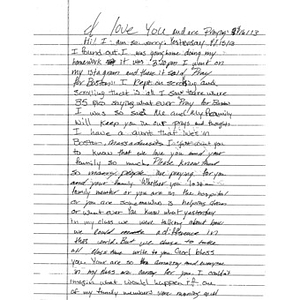 I love You and are Praying 4/16/13
Hi! I am so sorry. Yesterday 4/15/13
I found out. I was gong home doing my
homework it was 3:00pm I went on
my Instagram and there it said "Pray
for Boston". I kept on scrolling and
scrolling that is all I saw there were
85 pics saying what ever Pray for Boston
I was so sad Me and My Family
Will keep you in our prays and
I have a aunt that lives in
Boston, Massachusetts I want you
to know that we love you and your
family so much. Please know that
so many people are praying for you
and your family. Whether you lost a
family member or you are in the hospital
or you are someone is helping them
or what ever. You know what yesterday
in my class we were talking about how
we could make a difference in
this world. But we chose to take
all these and write to you God bless
you. Your are so amazing and everyone
in my class are for you. I couldn't
imagine what would happen if one
of my family members were running and